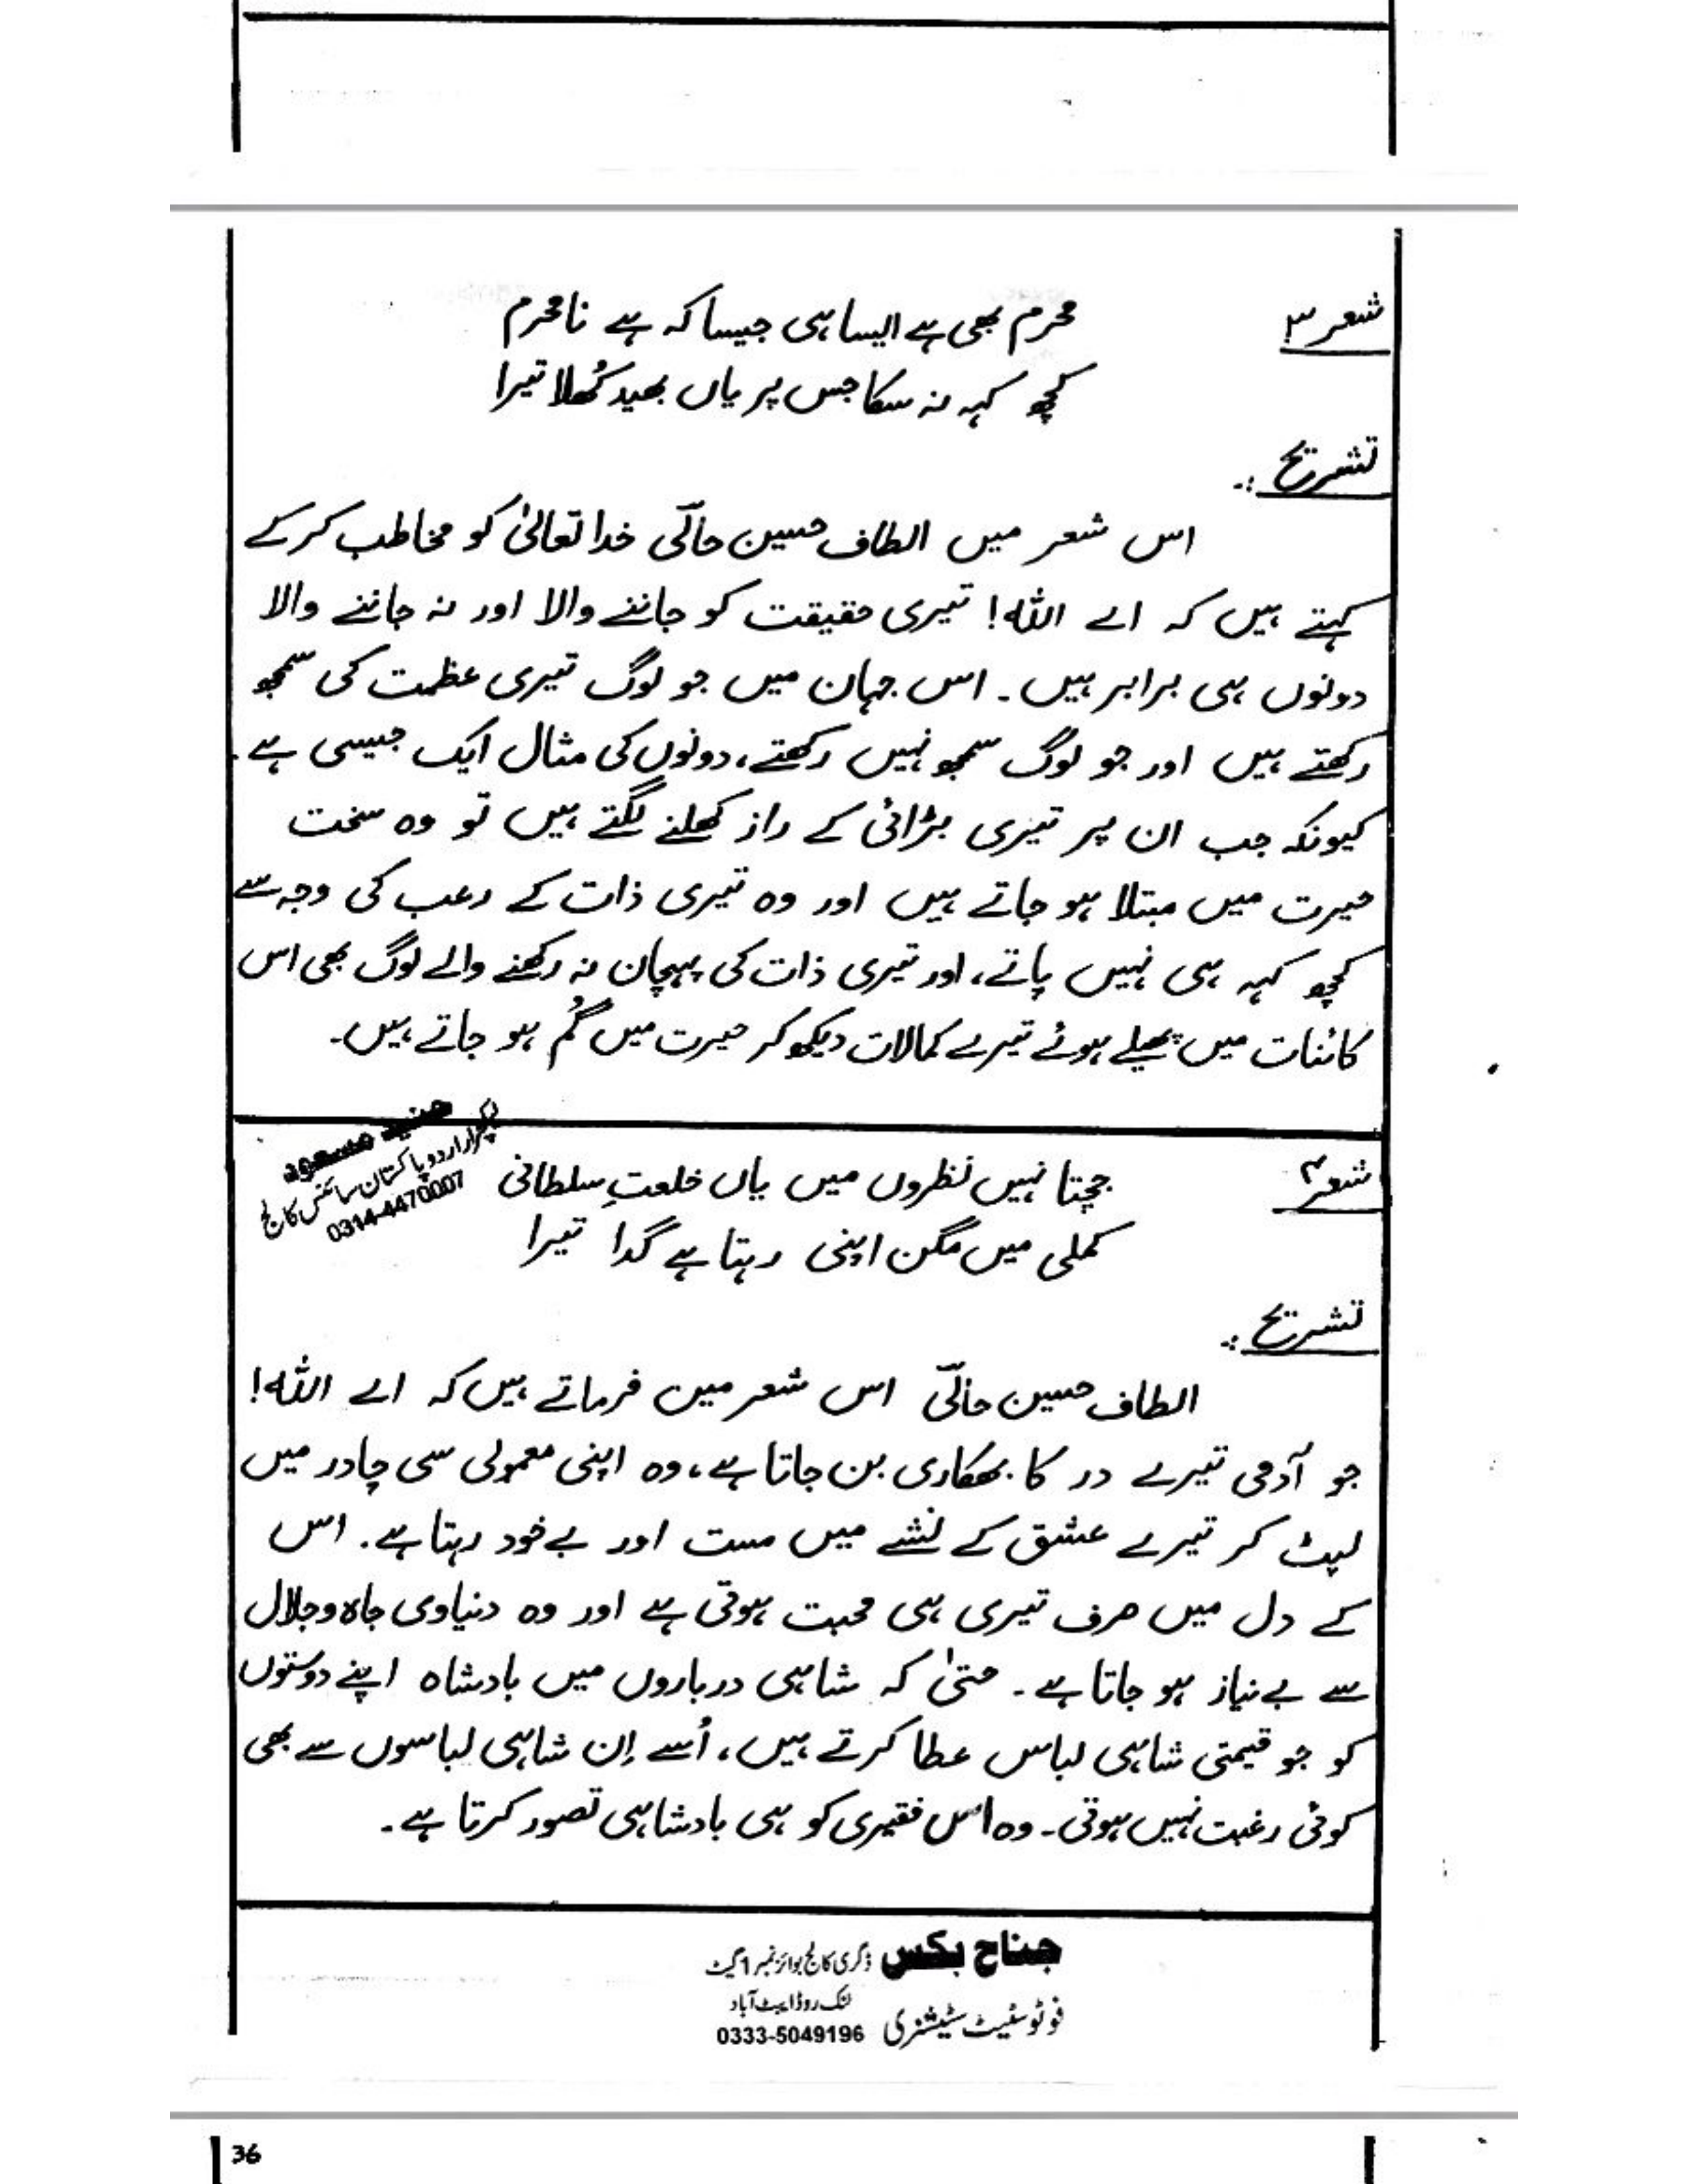 شعر ۳
محرم بھی ہے ایسا ہی جیسا کہ ہے نامحرم
کچھ کہہ نہ سکا جس پر یاں بھید کُھلا تیرا
تشریح :۔
اس شعر میں الطاف حسین حالؔی خدا تعالیٰ کو مخاطب کر کے
کہتے ہیں کہ اے اللہ! تیری حقیقت کو جاننے والا اور نہ جاننے والا
دونوں ہی برابر ہیں ۔ اس جہان میں جو لوگ تیری عظمت کی سمجھ
رکھتے ہیں اور جو لوگ سمجھ نہیں رکھتے، دونوں کی مثال ایک جیسی ہے ۔
کیونکہ جب ان پر تیری بڑائی کے راز کھلنے لگتے ہیں تو وہ سخت
حیرت میں مبتلا ہو جاتے ہیں اور وہ تیری ذات کے رعب کی وجہ سے
کچھ کہہ ہی نہیں پاتے، اور تیری ذات کی پہچان نہ رکھنے والے لوگ بھی اس
کائنات میں پھیلے ہوئے تیرے کمالات دیکھ کر حیرت میں گُم ہو جاتے ہیں۔
جنید مسعود
لیکچرار اردو پاکستان سائنس کالج
0314-4470007
شعر ۴
جچتا نہیں نظروں میں یاں خلعتِ سلطانی
کملی میں مگن اپنی رہتا ہے گدا تیرا
تشریح :۔
الطاف حسین حالؔی اس شعر میں فرماتے ہیں کہ اے اللہ!
جو آدمی تیرے در کا بھکاری بن جاتا ہے، وہ اپنی معمولی سی چادر میں
لپٹ کر تیرے عشق کے نشے میں مست اور بے خود رہتا ہے۔ اس
کے دل میں صرف تیری ہی محبت ہوتی ہے اور وہ دنیاوی جاہ و جلال
سے بے نیاز ہو جاتا ہے ۔ حتیٰ کہ شاہی درباروں میں بادشاہ اپنے دوستوں
کو جو قیمتی شاہی لباس عطا کرتے ہیں، اُسے اِن شاہی لباسوں سے بھی
کوئی رغبت نہیں ہوتی۔ وہ اس فقیری کو ہی بادشاہی تصور کرتا ہے ۔
جناح بکس ڈگری کالج بوائز نمبر 1 گیٹ
لنک روڈ ایبٹ آباد
فوٹوسٹیٹ سٹیشنری 0333-5049196
36